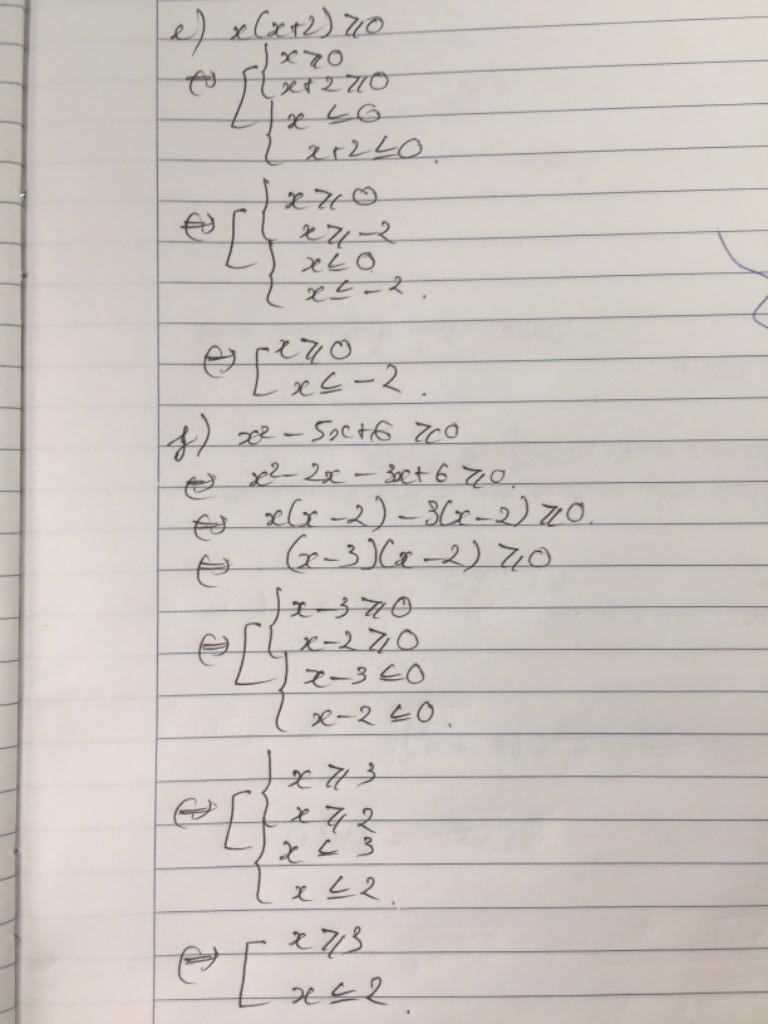 e) x(x+2) ⩾ 0
⇔ [ { x ⩾ 0
x+2 ⩾ 0
{ x ≤ 0
x+2 ≤ 0.
⇔ [ { x ⩾ 0
x ⩾ -2
{ x ≤ 0
x ≤ -2.
⇔ [ x ⩾ 0
x ≤ -2.
f) x² - 5x+6 ⩾ 0
⇔ x² - 2x - 3x+6 ⩾ 0.
⇔ x(x-2) - 3(x-2) ⩾ 0.
⇔ (x-3)(x-2) ⩾ 0
⇔ [ { x-3 ⩾ 0
x-2 ⩾ 0
{ x-3 ≤ 0
x-2 ≤ 0.
⇔ [ { x ⩾ 3
x ⩾ 2
{ x ≤ 3
x ≤ 2.
⇔ [ x ⩾ 3
x ≤ 2.